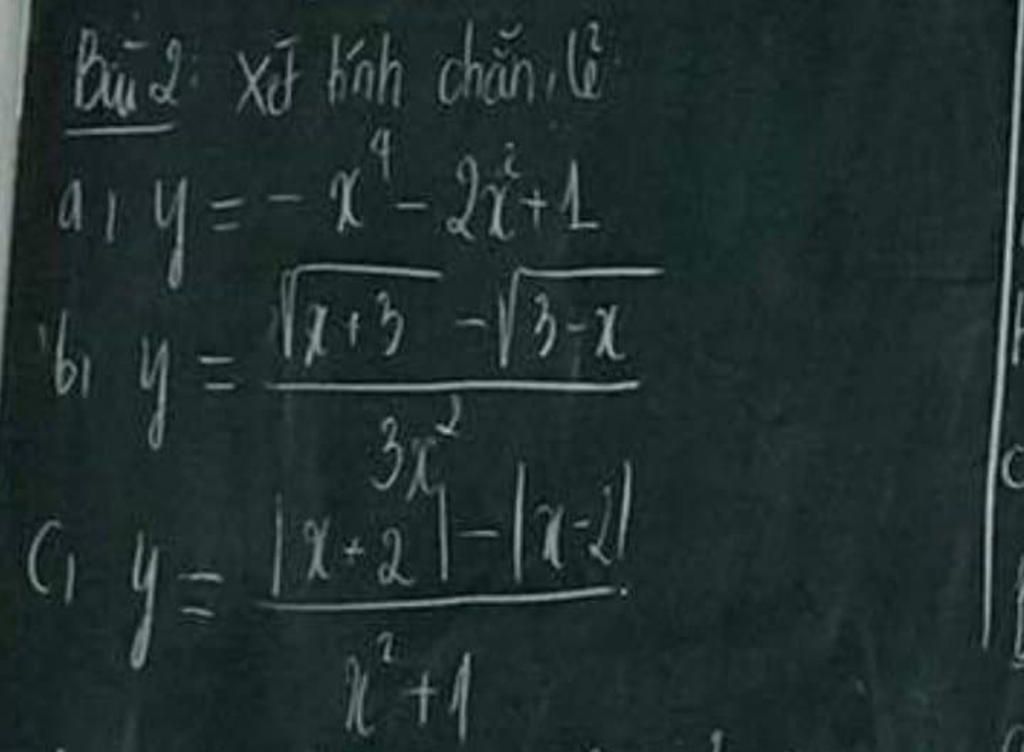 Bài 2: Xét tính chẵn, lẻ
a, y = - x⁴ - 2x² + 1
b, y = (√(x+3) - √(3-x)) / 3x²
c, y = (|x+2| - |x-2|) / (x² + 1)